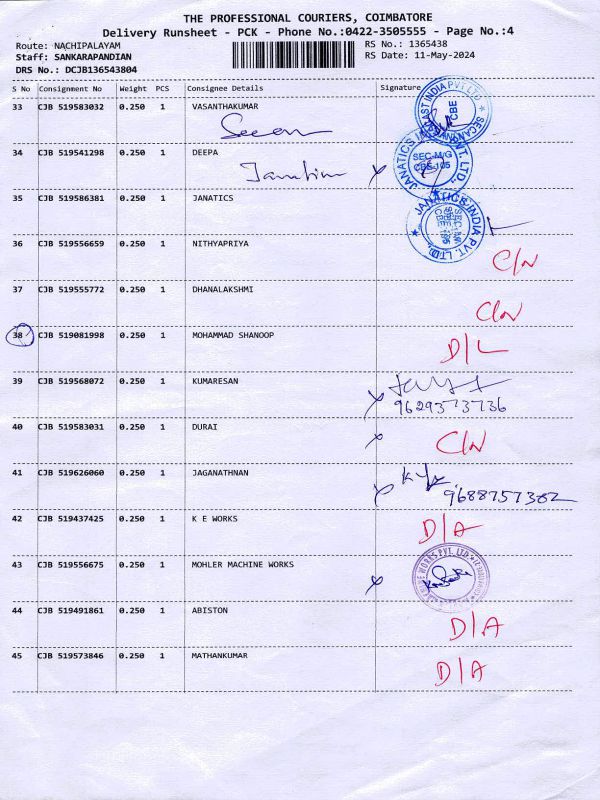 THE PROFESSIONAL COURIERS, COIMBATORE
Delivery Runsheet - PCK - Phone No.:0422-3505555 - Page No.:4
Route: NACHIPALAYAM RS No.: 1365438
Staff: SANKARAPANDIAN RS Date: 11-May-2024
DRS No.: DCJB136543804
S No Consignment No Weight PCS Consignee Details Signature
33 CJB 519583032 0.250 1 VASANTHAKUMAR
CBE
34 CJB 519541298 0.250 1 DEEPA
JANATICS INDIA PVT. LTD.
SEC-M/G
CBE-105
35 CJB 519586381 0.250 1 JANATICS
JANATICS INDIA PVT. LTD.
36 CJB 519556659 0.250 1 NITHYAPRIYA
C/N
37 CJB 519555772 0.250 1 DHANALAKSHMI
C/N
38 CJB 519081998 0.250 1 MOHAMMAD SHANOOP
D/L
39 CJB 519568072 0.250 1 KUMARESAN
9629373736
40 CJB 519583031 0.250 1 DURAI
C/N
41 CJB 519626060 0.250 1 JAGANATHNAN
9688757382
42 CJB 519437425 0.250 1 K E WORKS
D/A
43 CJB 519556675 0.250 1 MOHLER MACHINE WORKS
WORKS PVT. LTD.
44 CJB 519491861 0.250 1 ABISTON
D/A
45 CJB 519573846 0.250 1 MATHANKUMAR
D/A